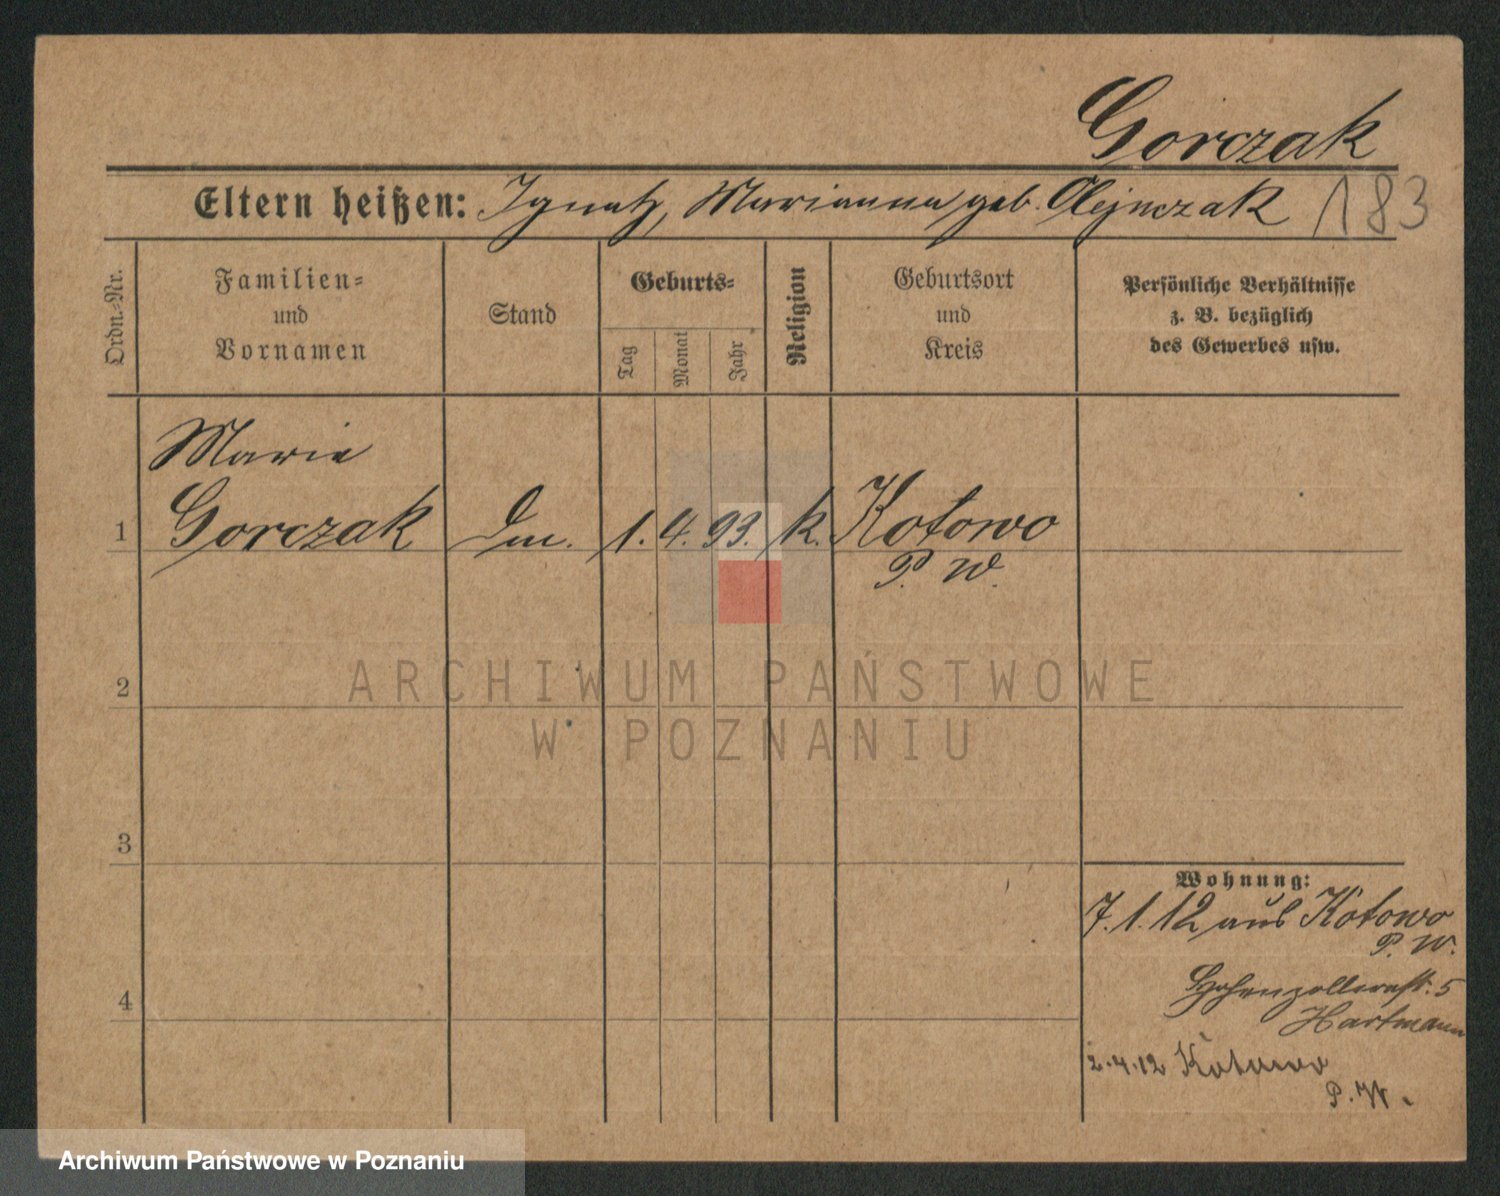 Gorczak
Eltern heißen: Ignatz, Marianna geb. Olejnczak 183
Ordn.-Nr.
Familien-
und
Vornamen
Stand
Geburts-
Tag
Monat
Jahr
Religion
Geburtsort
und
Kreis
Persönliche Verhältnisse
z. B. bezüglich
des Gewerbes usw.
Marie
1 Gorczak 1. 4. 93. k. Kotowo
P. W.
2
3
4
Wohnung:
7.1.12 aus Kotowo
P. W.
Hohenzollernstr. 5
Hartmann
2.4.12 Kotowo
P. W.
ARCHIWUM PAŃSTWOWE
W POZNANIU
Archiwum Państwowe w Poznaniu